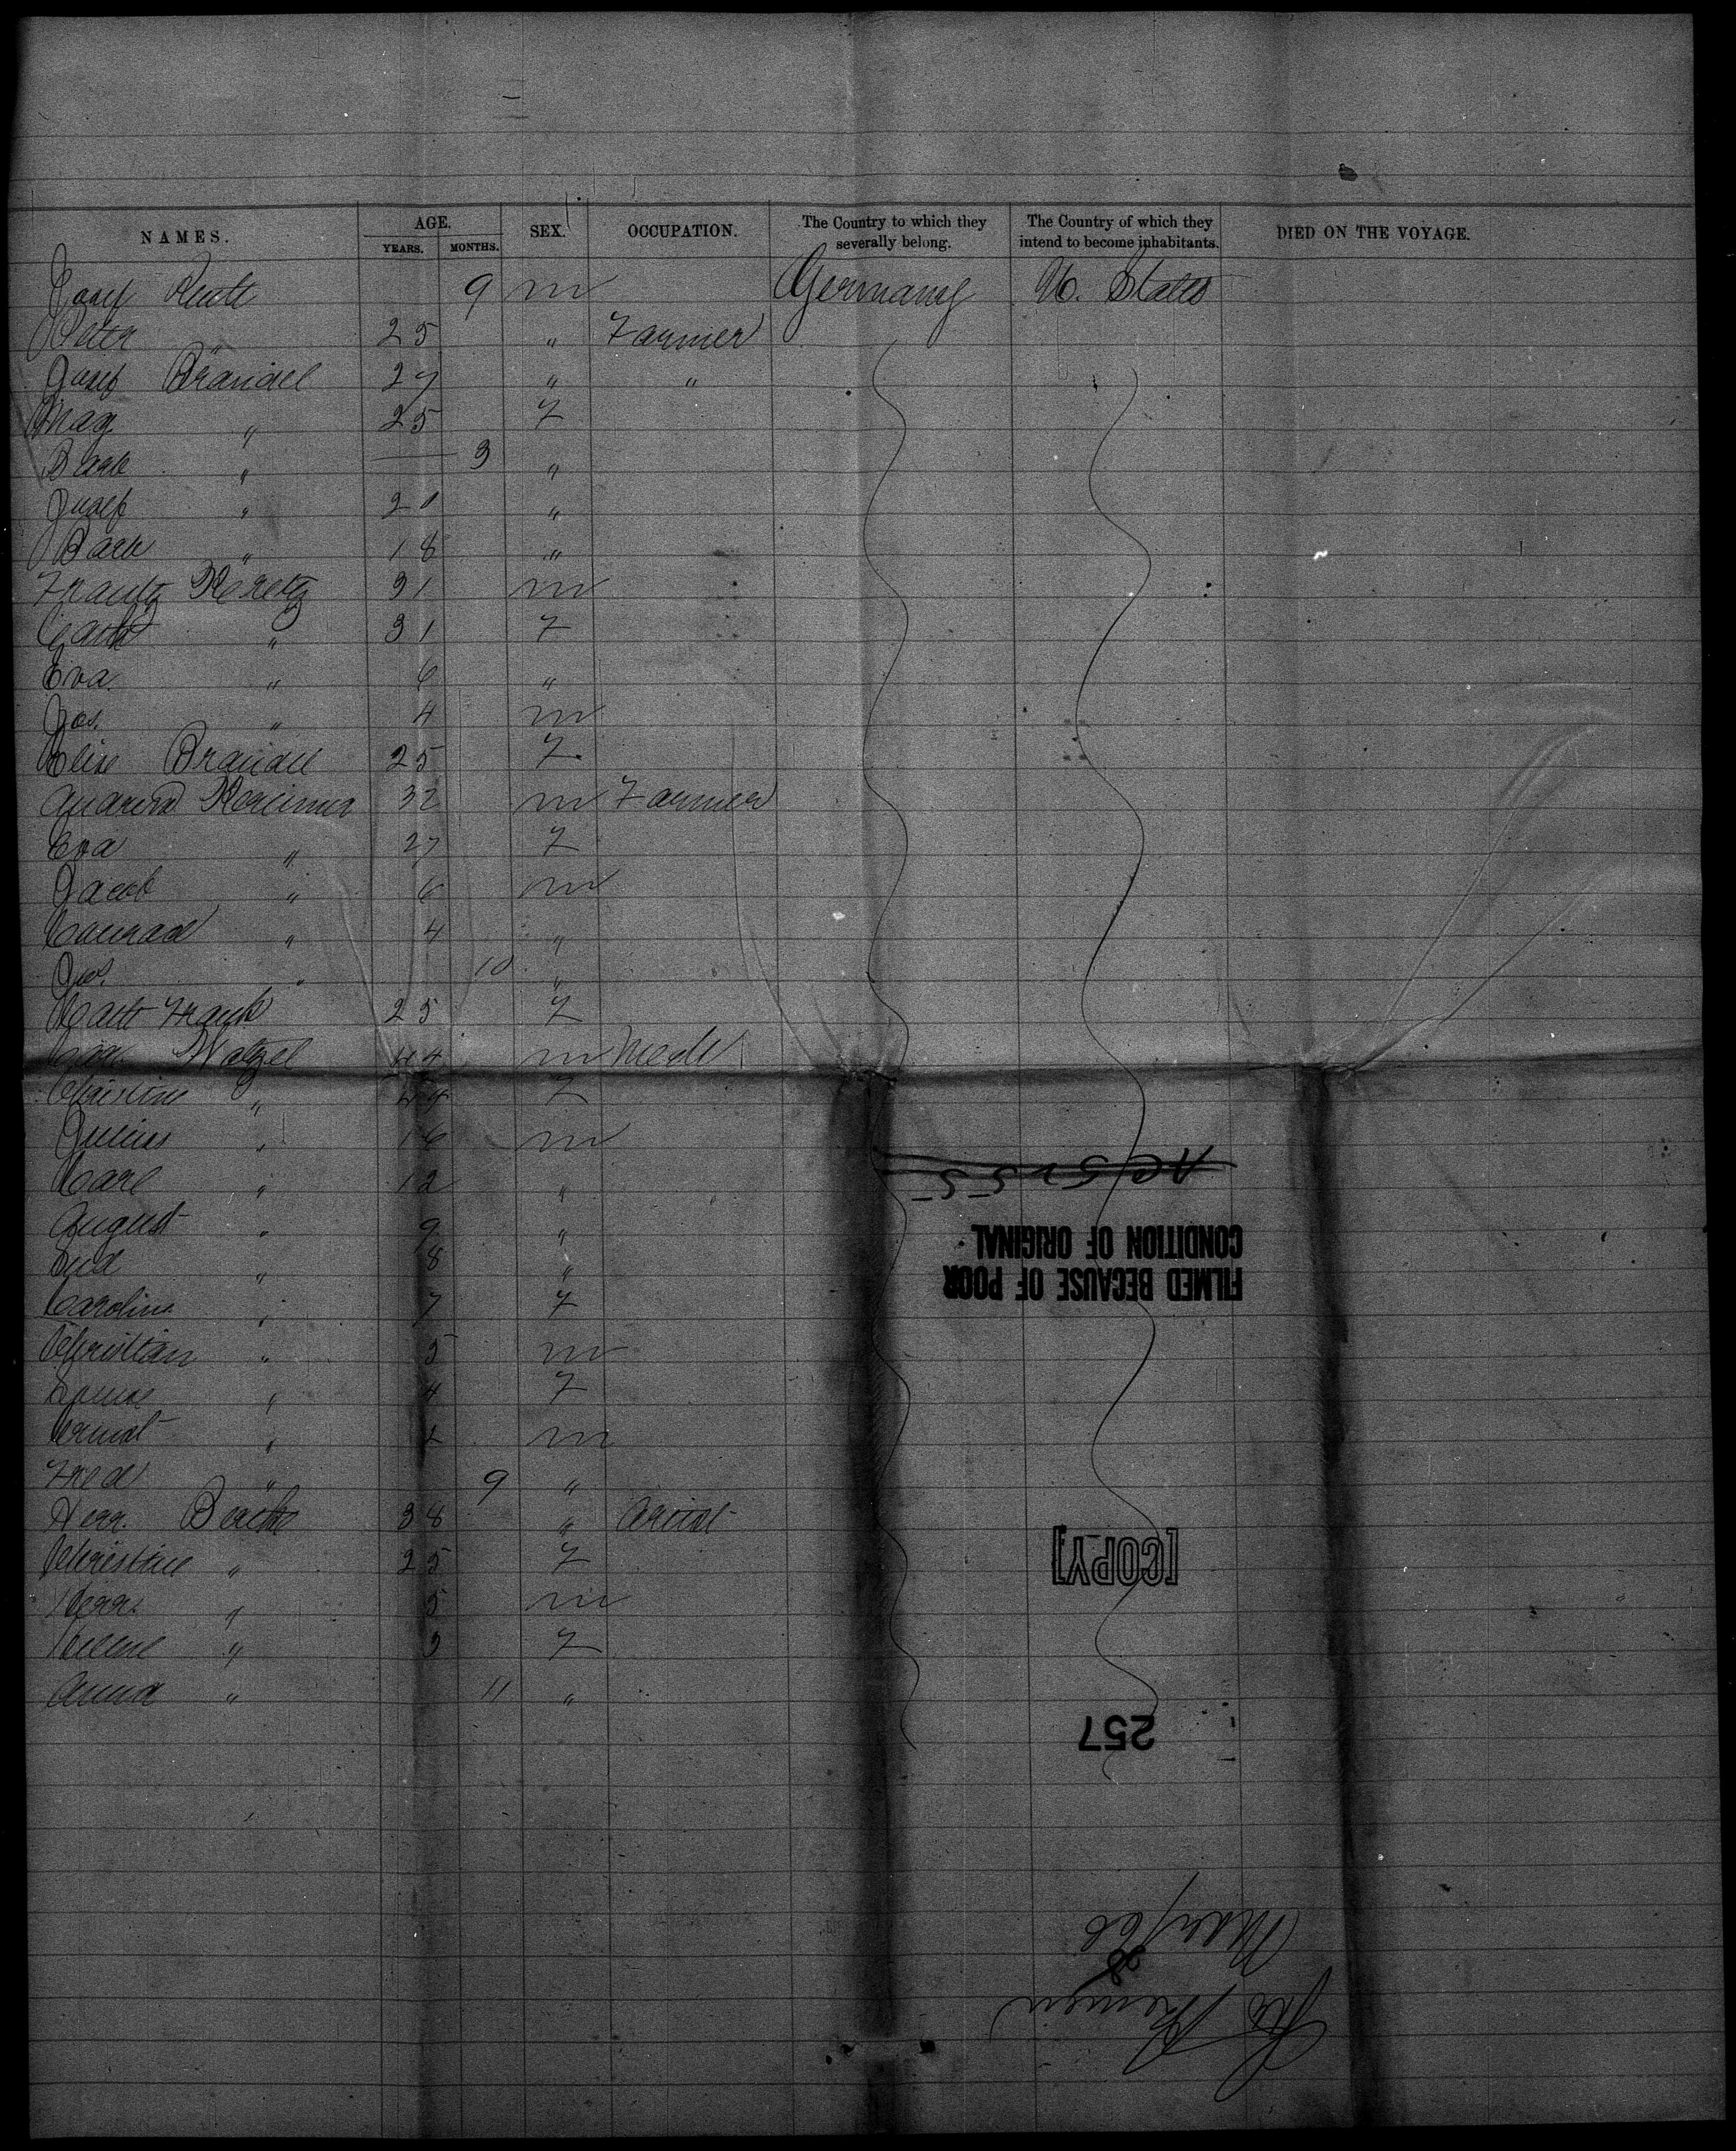 NAMES. AGE. YEARS. MONTHS. SEX. OCCUPATION. The Country to which they severally belong. The Country of which they intend to become inhabitants. DIED ON THE VOYAGE.
Josef 9 m Germany U. States
Peter " 25 " Farmer
Josef Brandel 27 " "
Mag " 25 F
Barb " — 3 "
Josef " 21 "
Barb " 18 "
Frantz 31 m
Cath " 31 F
Eva " 6 "
Jos. " 4 m
Elise Brandel 25 F
32 m Farmer
Eva " 27 F
Jacob " 6 m
Conrad " 4 "
Jos. " 10 "
Cath Frank 25 F
Watzel 44 m
Christine " 44 F
Julius " 16 m
Carl " 12 "
August " 9 "
Lud " 8 "
Caroline " 7 F
Christian " 5 m
Louise " 4 F
Ernst " 2 m
Fred " 9 "
Herr. 38 " Artist
Christine " 25 F
Herr. " 5 m
Helene " 3 F
Anna " 11 "
FILMED BECAUSE OF POOR
CONDITION OF ORIGINAL
[COPY]
257